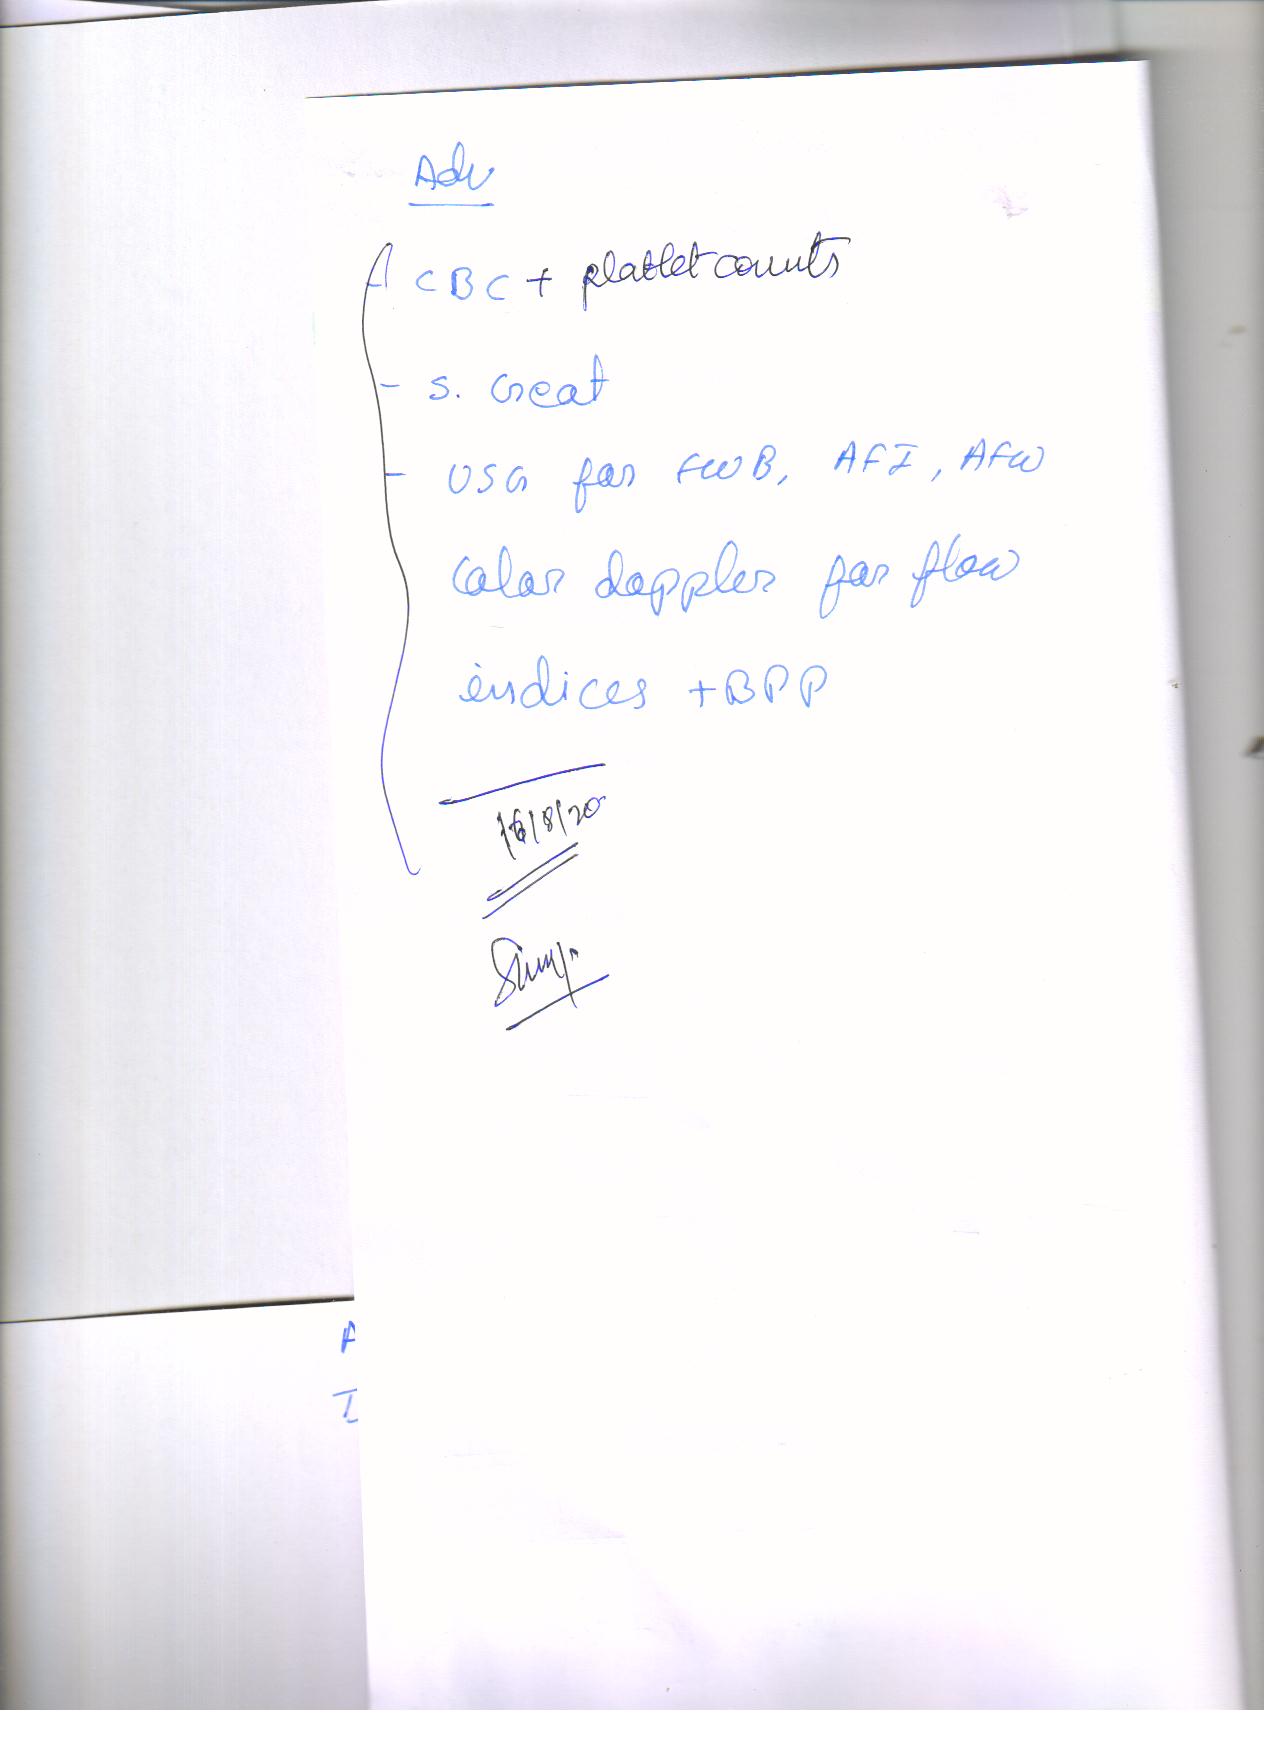 Adv
CBC + platlet counts
- S. Creat
- USG for FWB, AFI, AFW
Color doppler for flow
indices + BPP
16/8/20